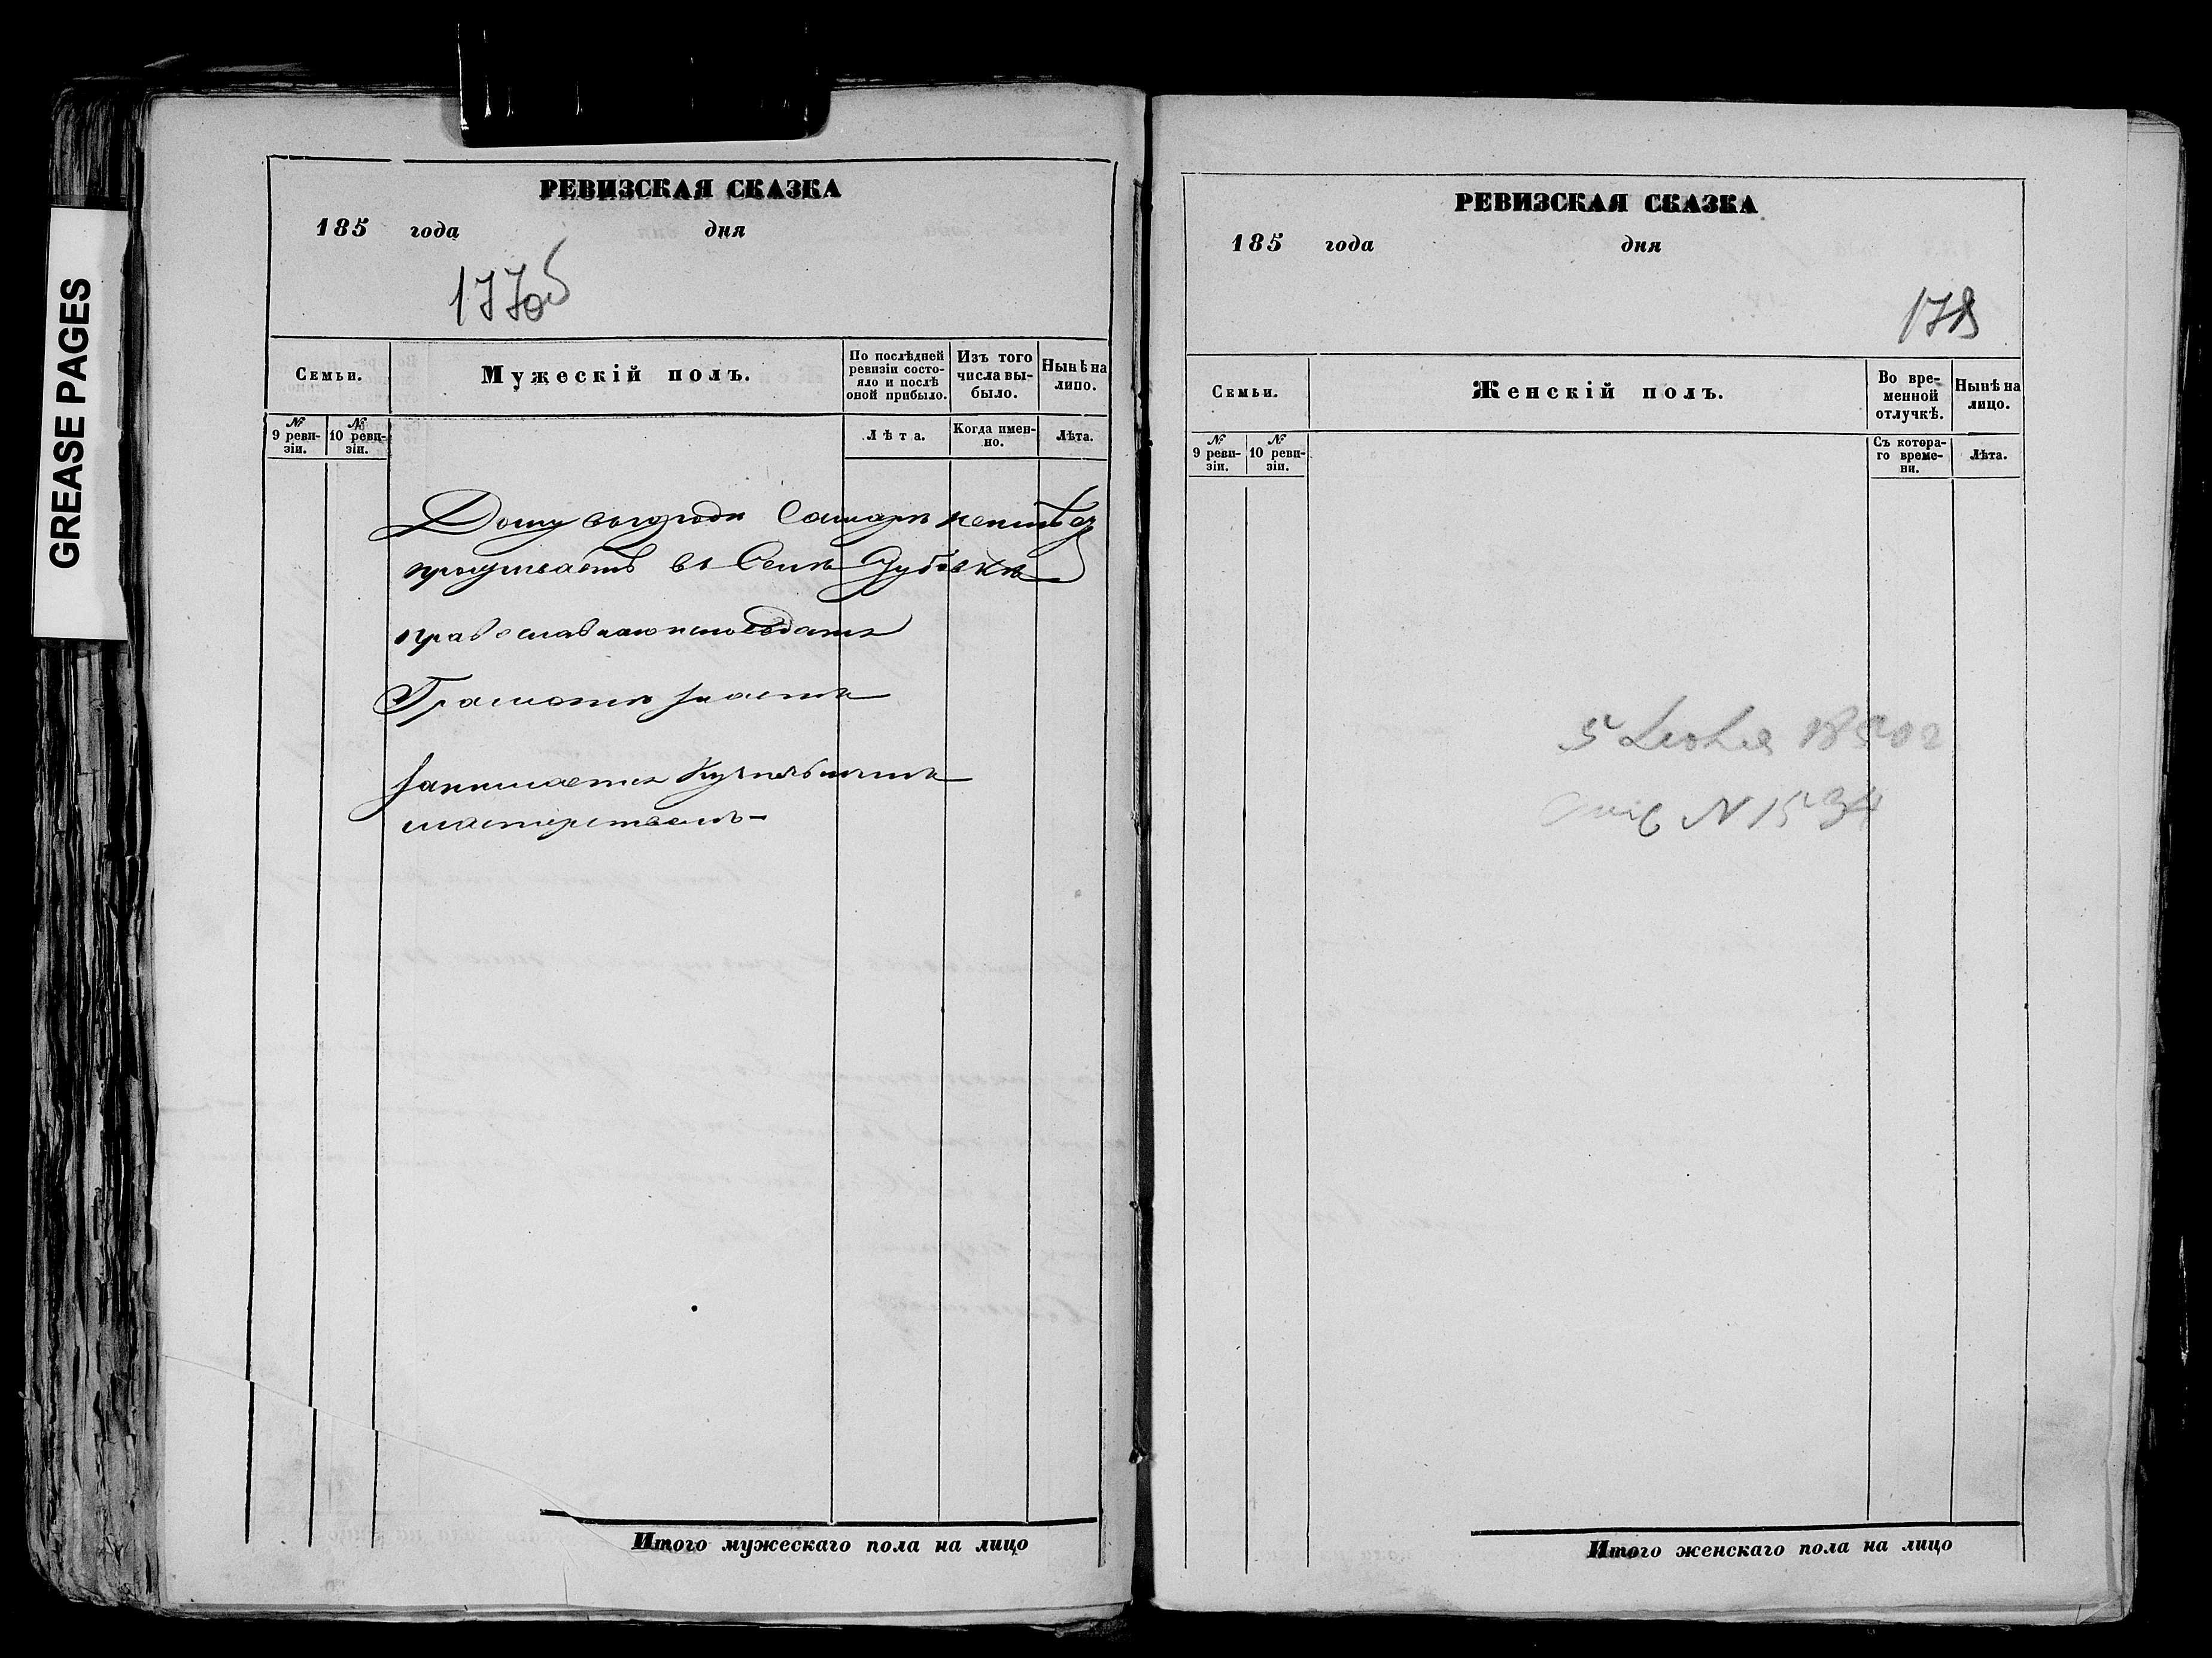 GREASE PAGES
РЕВИЗСКАЯ СКАЗКА
185 года дня
177об
Семьи.
Мужескій полъ.
По послѣдней ревизіи состо-
яло и послѣ
оной прибыло.
Изъ того
числа вы-
было.
Нынѣ на
лицо.
№ 9 реви-
зіи.
№ 10 реви-
зіи.
Лѣта.
Когда имен-
но.
Лѣта.
Дому въ городѣ
проживаетъ въ Селѣ Зубовкѣ
православнаго исповѣданія
Грамотѣ знаетъ
занимается
мастерствомъ
Итого мужескаго пола на лицо
РЕВИЗСКАЯ СКАЗКА
185 года дня
178
Семьи.
Женскій полъ.
Во вре-
менной
отлучкѣ.
Нынѣ на
лицо.
№ 9 реви-
зіи.
№ 10 реви-
зіи.
Съ котора-
го време-
ни.
Лѣта.
N 1534
Итого женскаго пола на лицо